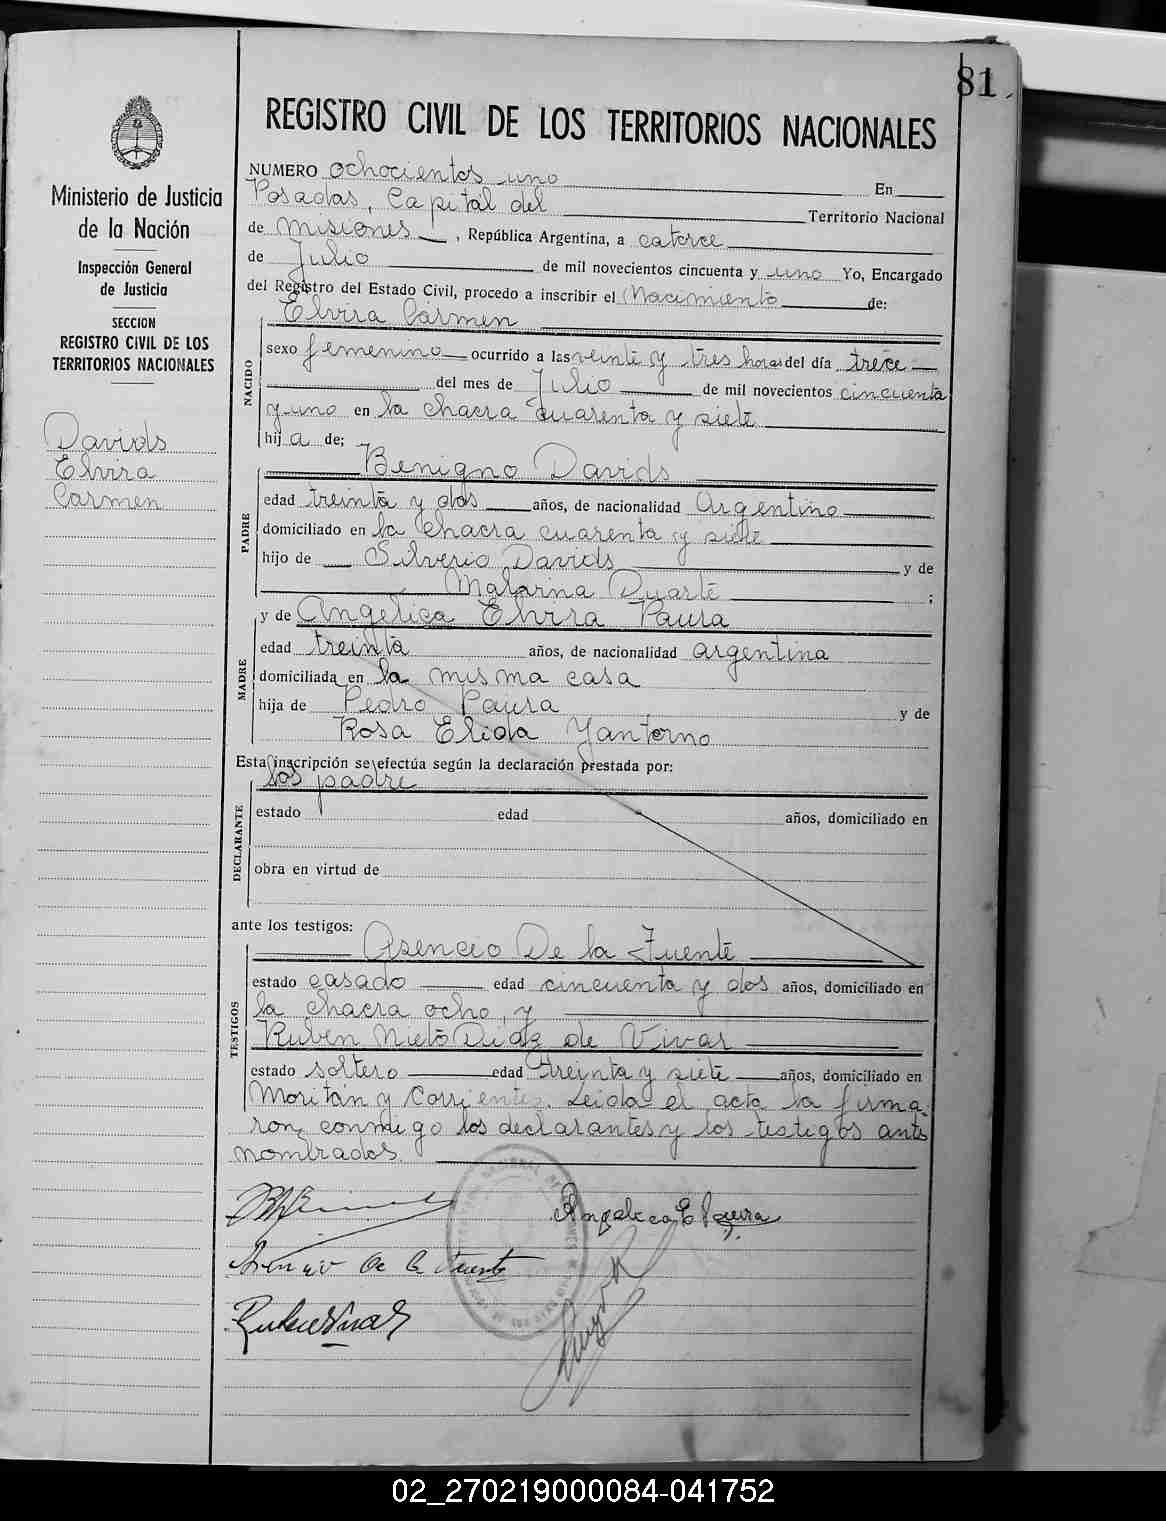 81
REGISTRO CIVIL DE LOS TERRITORIOS NACIONALES
Ministerio de Justicia
de la Nación
Inspección General
de Justicia
SECCION
REGISTRO CIVIL DE LOS
TERRITORIOS NACIONALES
Davids
Elvira
Carmen
NUMERO ochocientos uno En
Posadas, Capital del Territorio Nacional
de Misiones, República Argentina, a catorce
de Julio de mil novecientos cincuenta y uno Yo, Encargado
del Registro del Estado Civil, procedo a inscribir el Nacimiento de:
Elvira Carmen
NACIDO
sexo femenino ocurrido a las veinte y tres horas del día trece
del mes de Julio de mil novecientos cincuenta
y uno en la chacra cuarenta y siete
hija de;
Benigno Davids
PADRE
edad treinta y dos años, de nacionalidad Argentino
domiciliado en la chacra cuarenta y siete
hijo de Silverio Davids y de
Duarte ;
y de Angélica Elvira Paura
MADRE
edad treinta años, de nacionalidad argentina
domiciliada en la misma casa
hija de Pedro Paura y de
Rosa Elida Yantorno
Esta inscripción se efectúa según la declaración prestada por:
los padre
DECLARANTE
estado edad años, domiciliado en
obra en virtud de
ante los testigos:
Asencio De la Fuente
TESTIGOS
estado casado edad cincuenta y dos años, domiciliado en
la chacra ocho, y
Ruben Nieto Diaz de Vivar
estado soltero edad treinta y siete años, domiciliado en
Moritán y Corrientes. Leida el acta la firma-
ron, conmigo los declarantes y los testigos ante
nombrados.
Angelica E Paura
Asencio de la Fuente
02_270219000084-041752